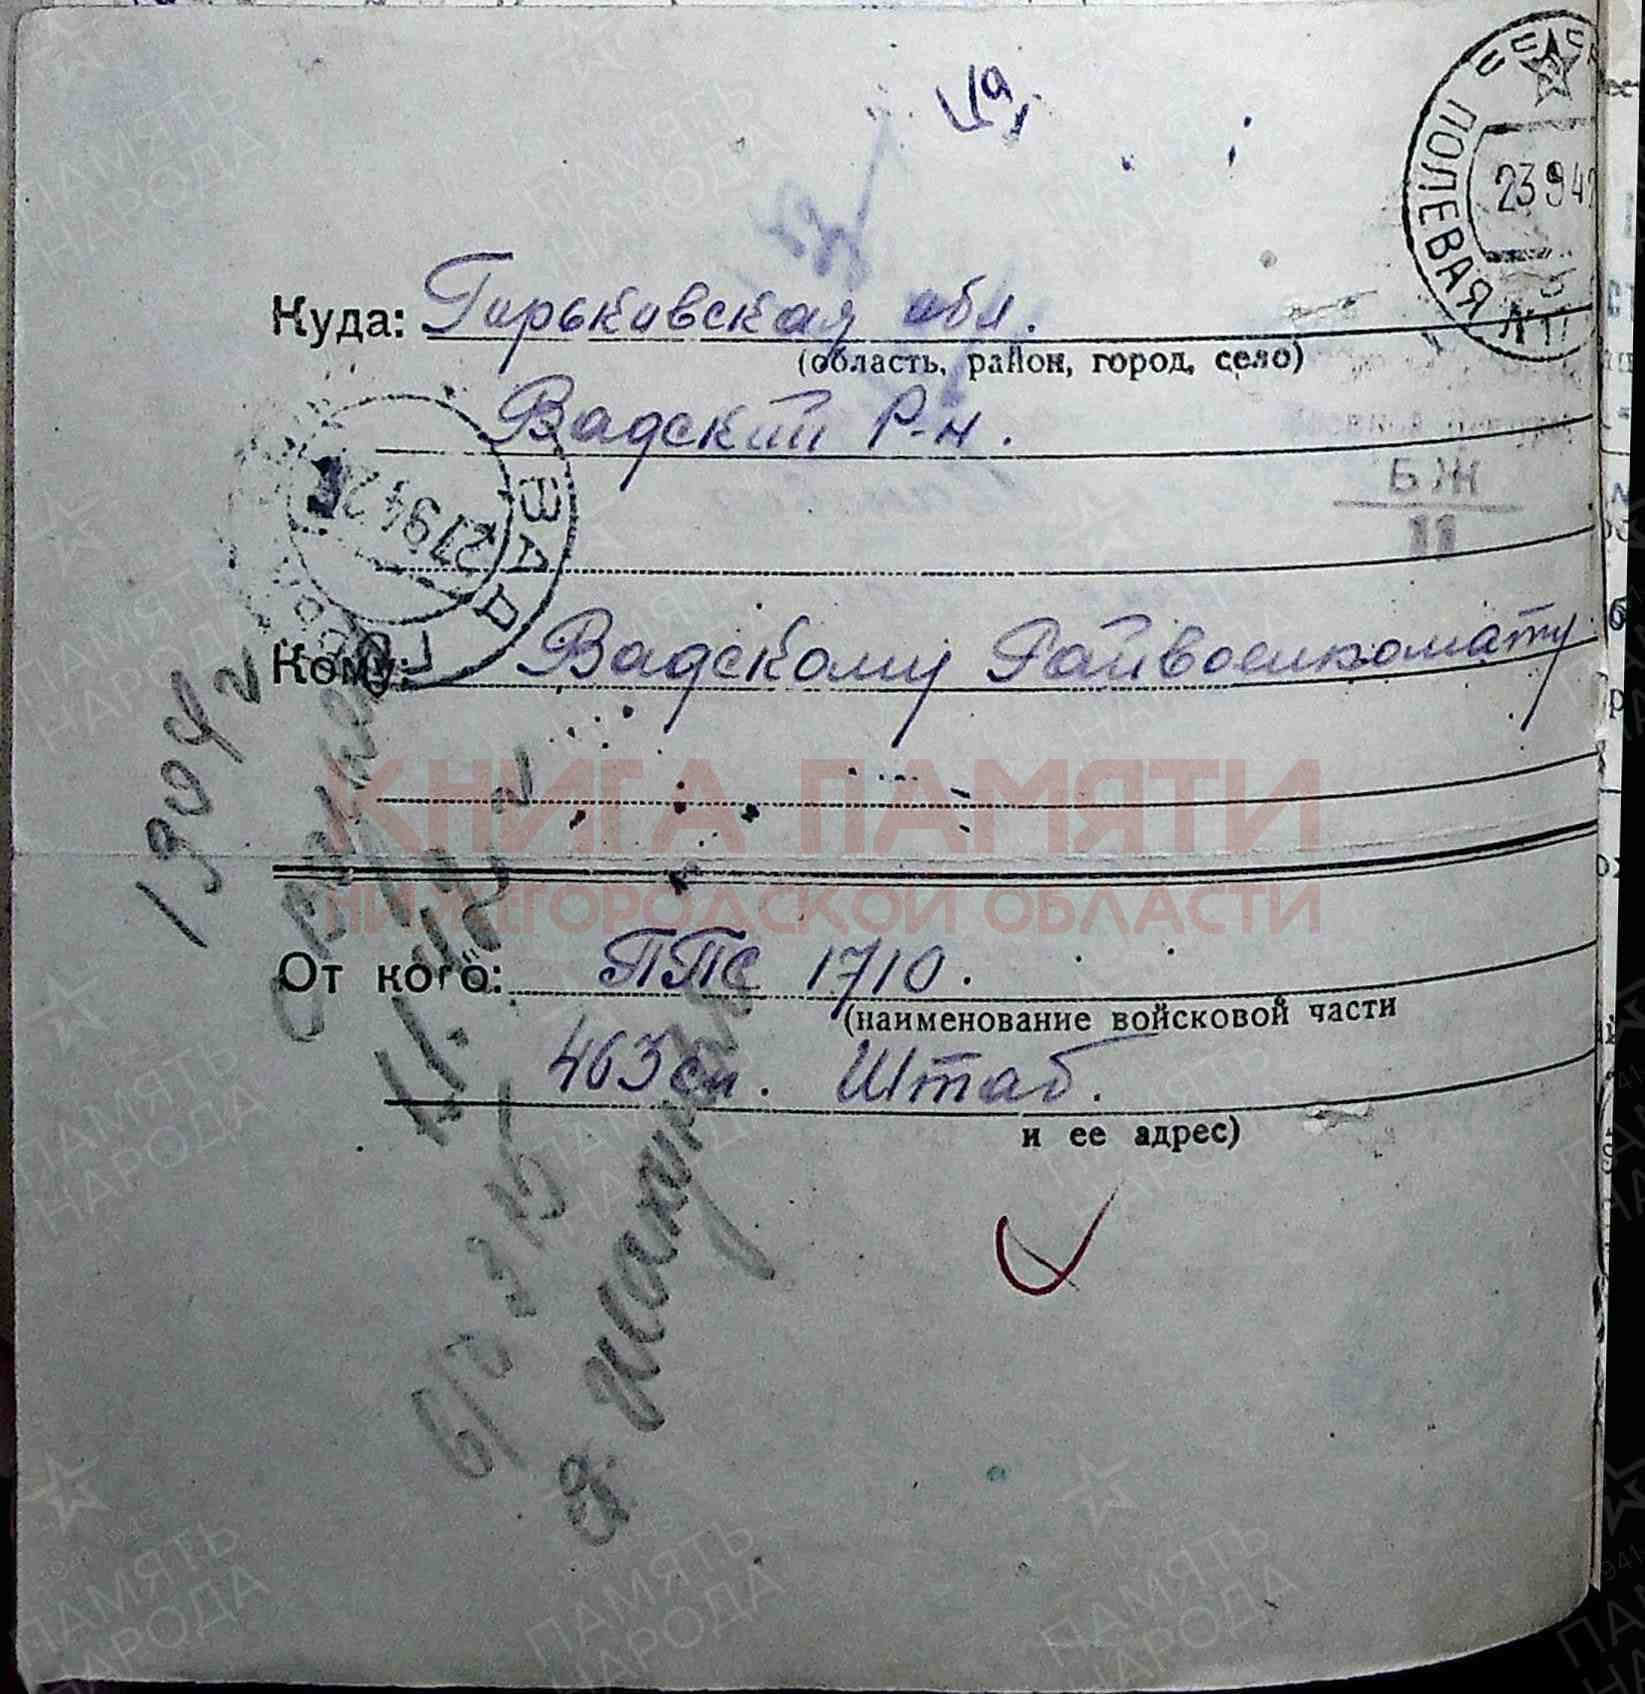 СССР
ПОЛЕВАЯ
23 9 42
Куда: Горьковская обл.
(область, район, город, село)
Вадский Р-н.
БЖ
11
ВАД
27 9 42
Кому: Вадскому Райвоенкомату
1904 г
КНИГА ПАМЯТИ
НИЖЕГОРОДСКОЙ ОБЛАСТИ
От кого: ППС 1710.
(наименование войсковой части
463 сп. Штаб.
и ее адрес)
ПАМЯТЬ
НАРОДА